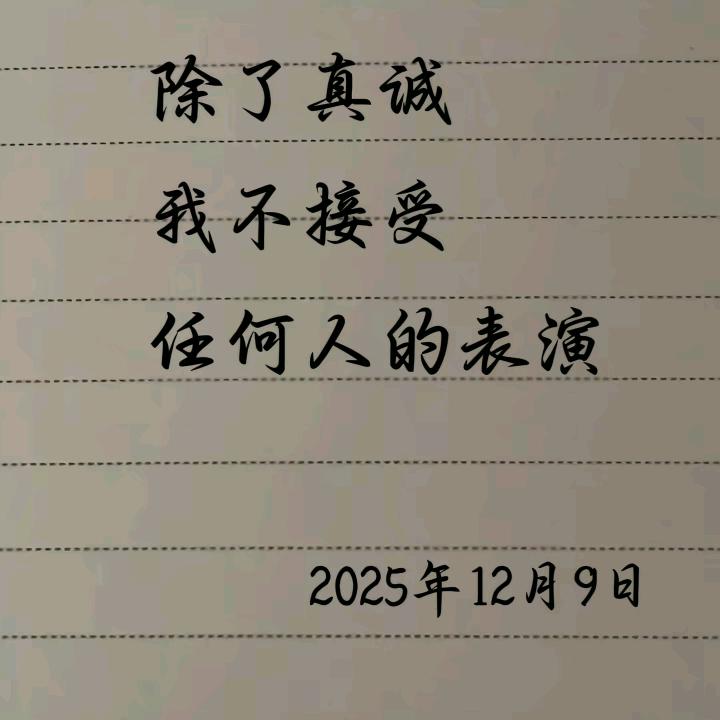 除了真诚
我不接受
任何人的表演
2025年12月9日